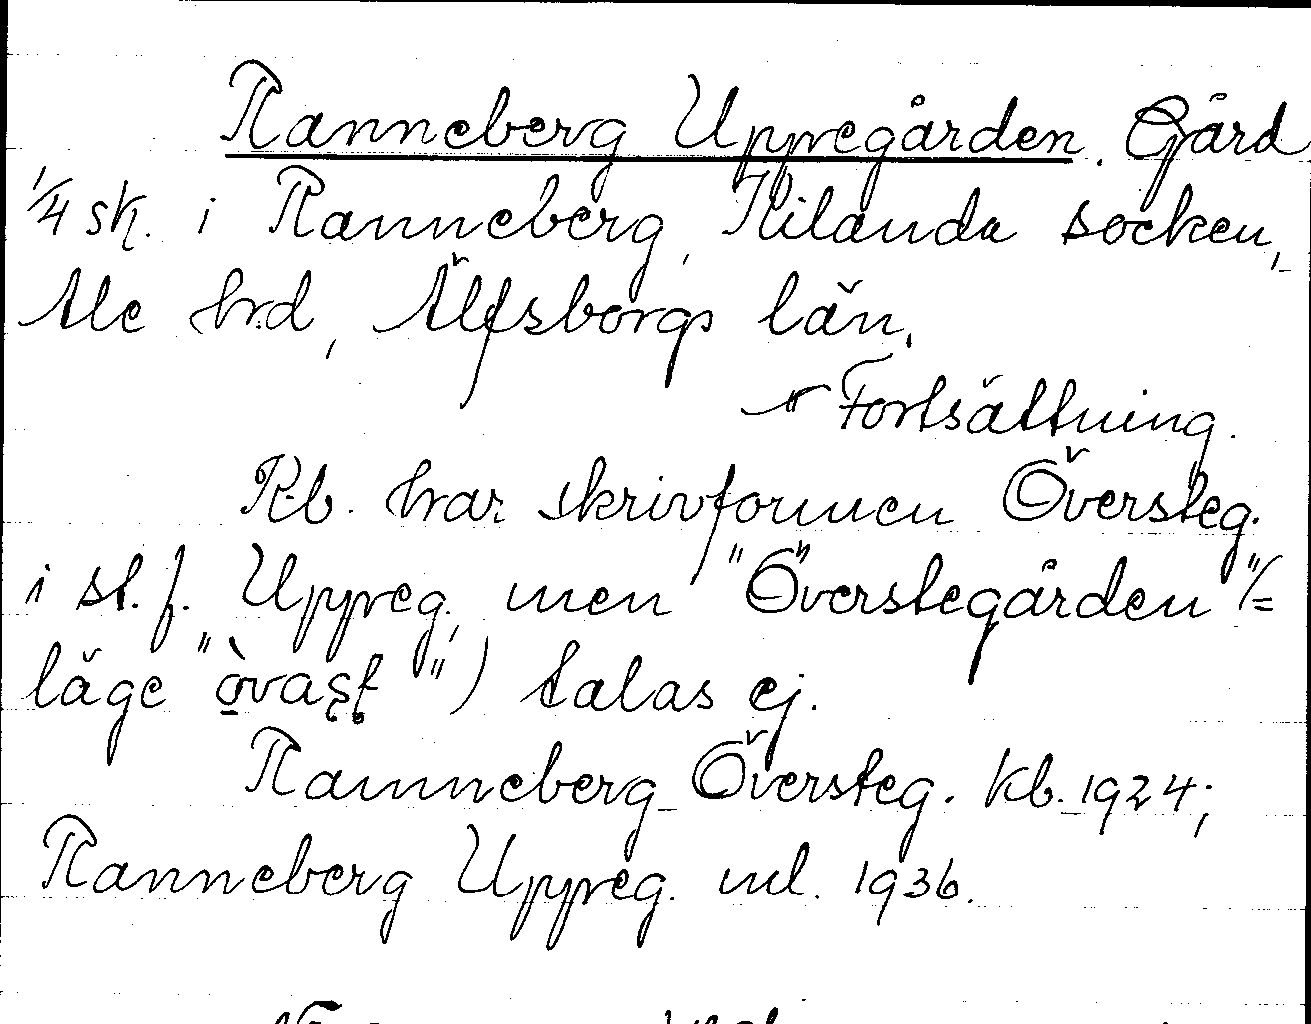 Ranneberg Uppegården. Gård
1/4 sk. i Ranneberg, Kilanda socken,
Ale hrd, Älfsborgs län.
Fortsättning.
Kb. har skrivformen Översteg.
i st. f. Uppeg., men "Överstegården" (=
läge "òvaşt") talas ej.
Ranneberg Översteg. kb. 1924;
Ranneberg Uppeg. ml. 1936.